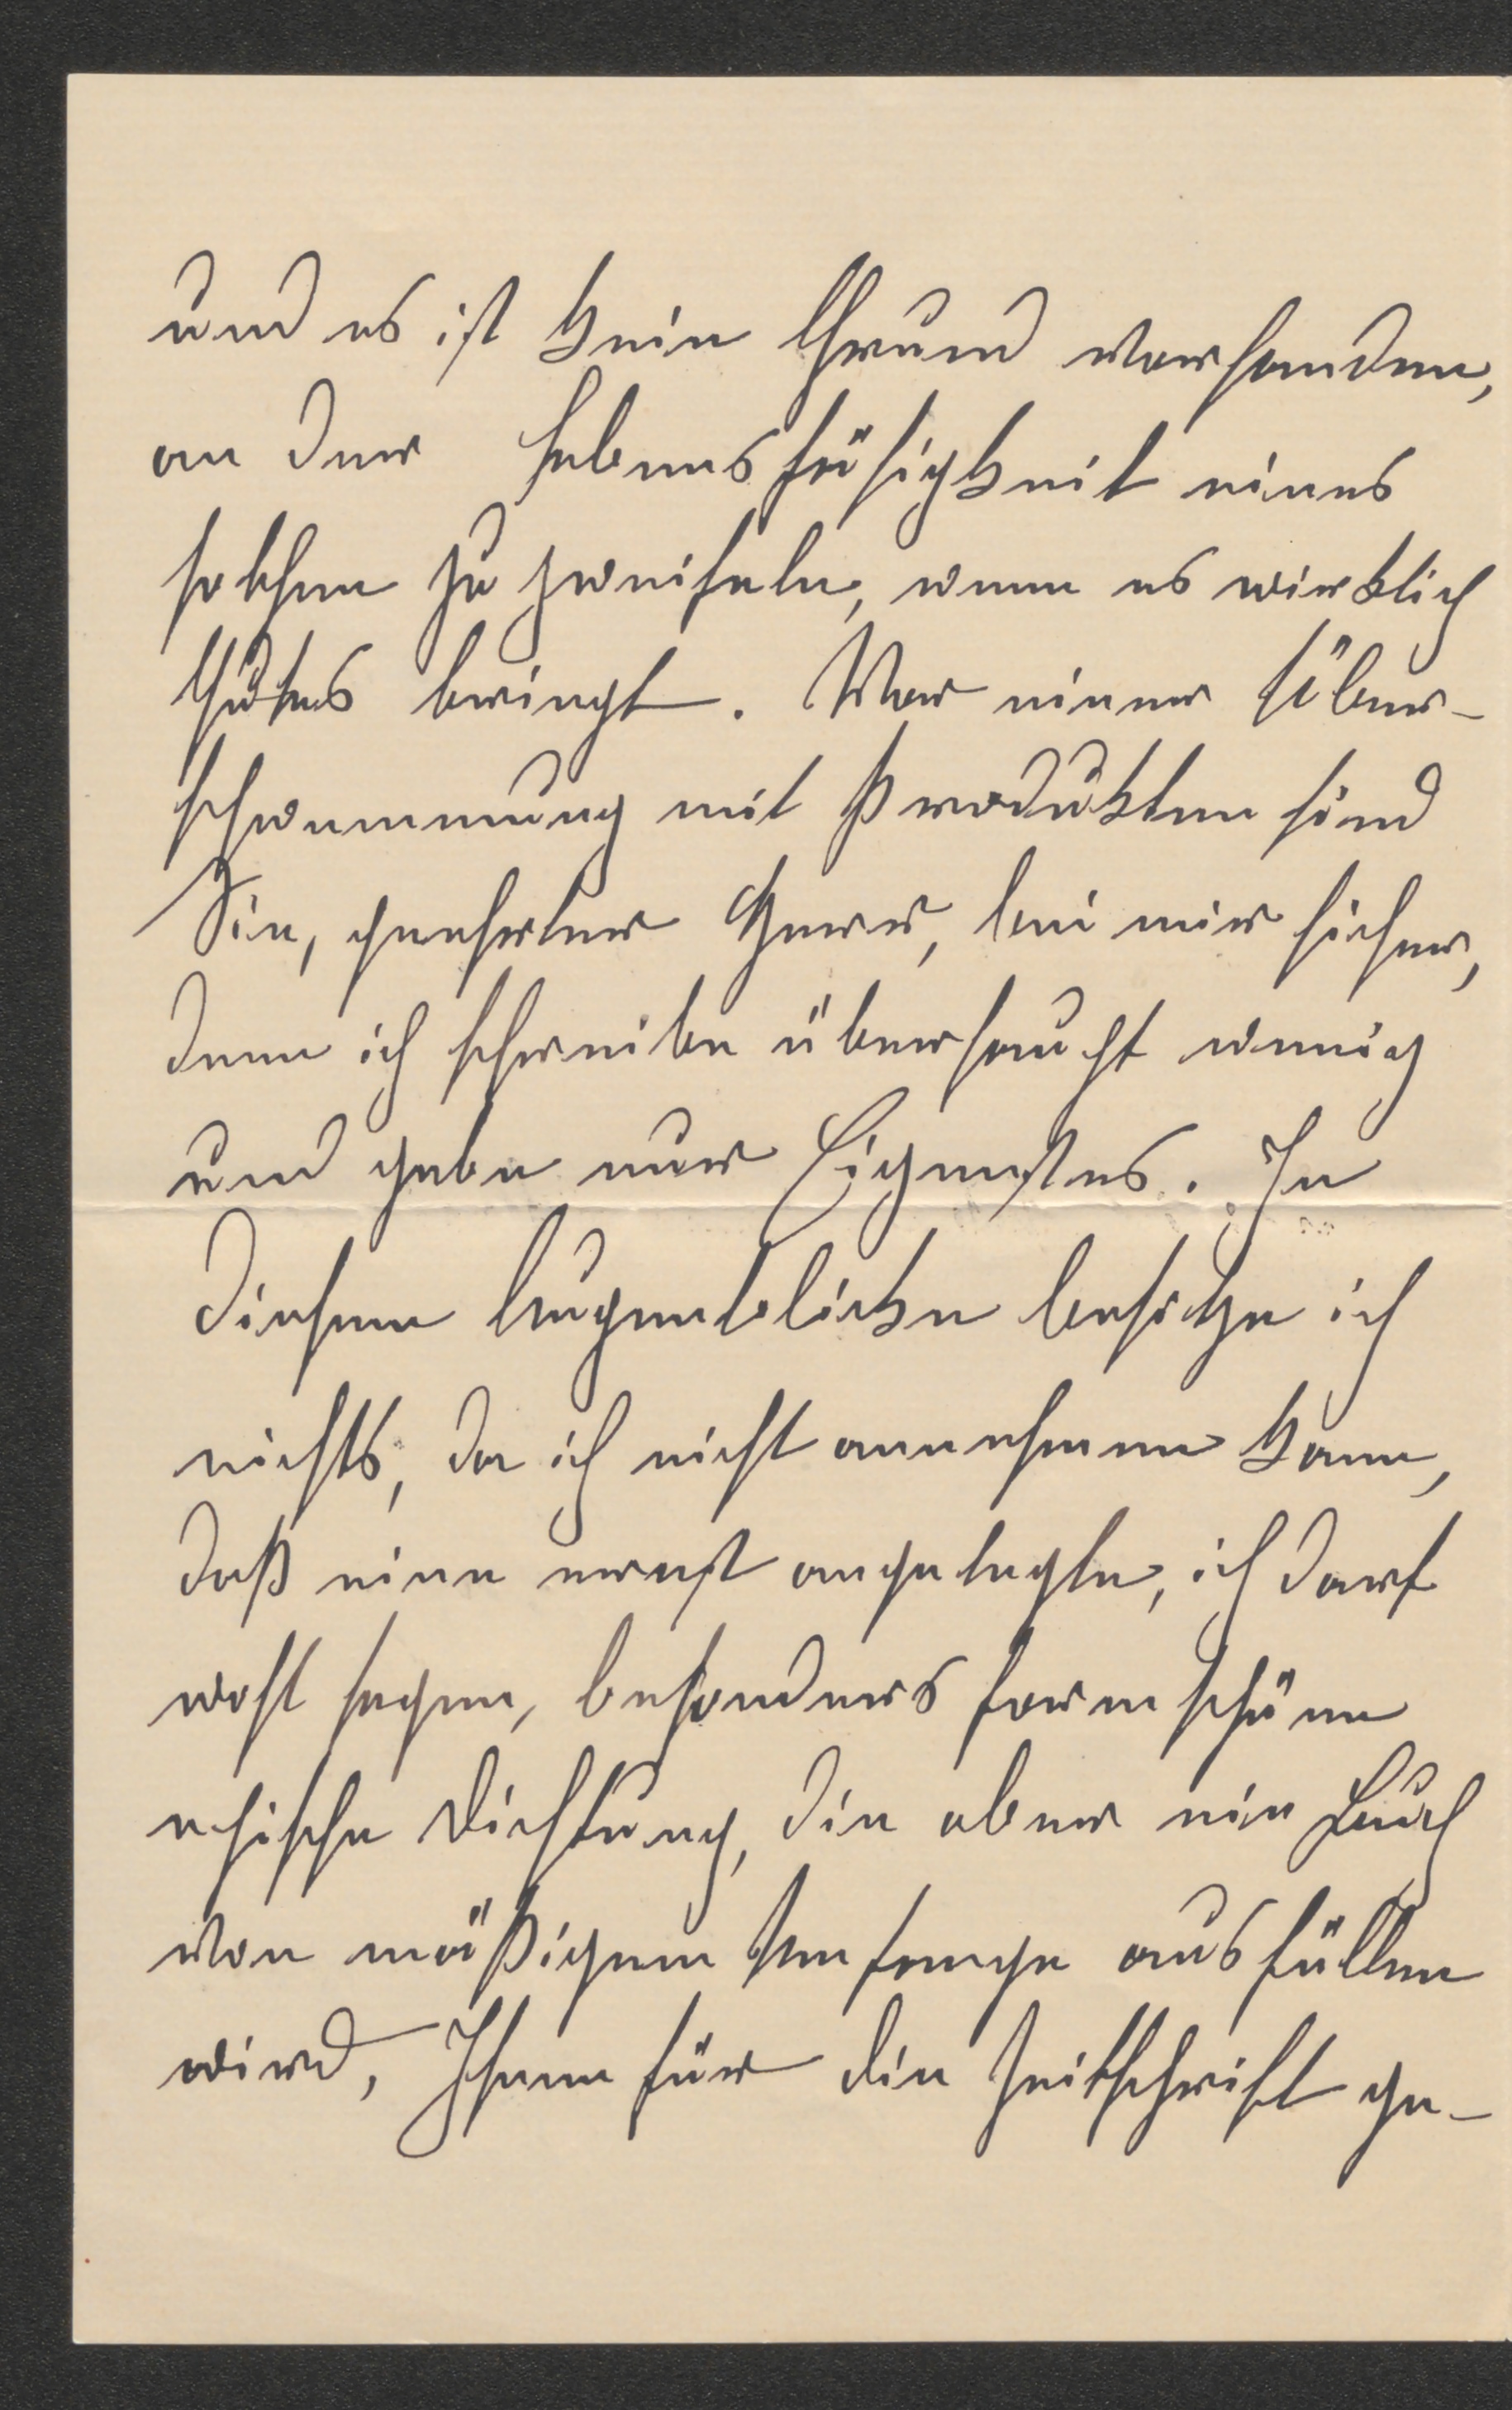 und es ist kein Grund vorhanden,
an der Lebensfähigkeit eines
solchen zu zweifeln, wenn es wirklich
Gutes bringt. Vor einer Über-
schwemmung mit Produkten sind
Sie, geehrter Herr, bei mir sicher,
denn ich schreibe überhaupt wenig
und gebe nur Eigenstes. In
diesem Augenblicke besitze ich
nichts, da ich nicht annehmen kann,
daß eine ernst angelegte, ich darf
wohl sagen, besonders formschöne
epische Dichtung, die aber ein Buch
von mäßigem Umfange ausfüllen
wird, Ihnen für die Zeitschrift ge-